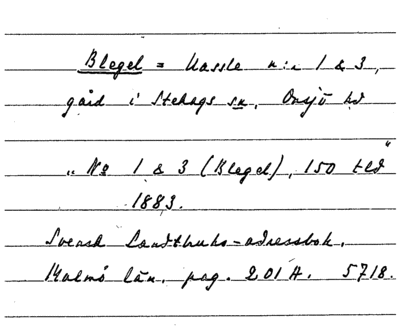 Blegel = Hassle n:r 1 & 3,
gård i Stehags sn, Onsjö hd
"No 1 & 3 (Blegel), 150 tld"
1883.
Svensk Landtbruks-adressbok.
Malmö län. pag. 201 A. 5718.